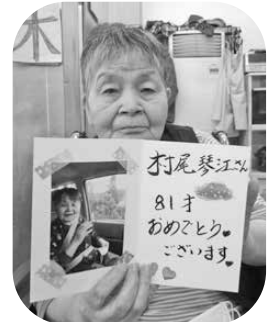 木
村尾琴江さん
81才
おめでとう
ございます